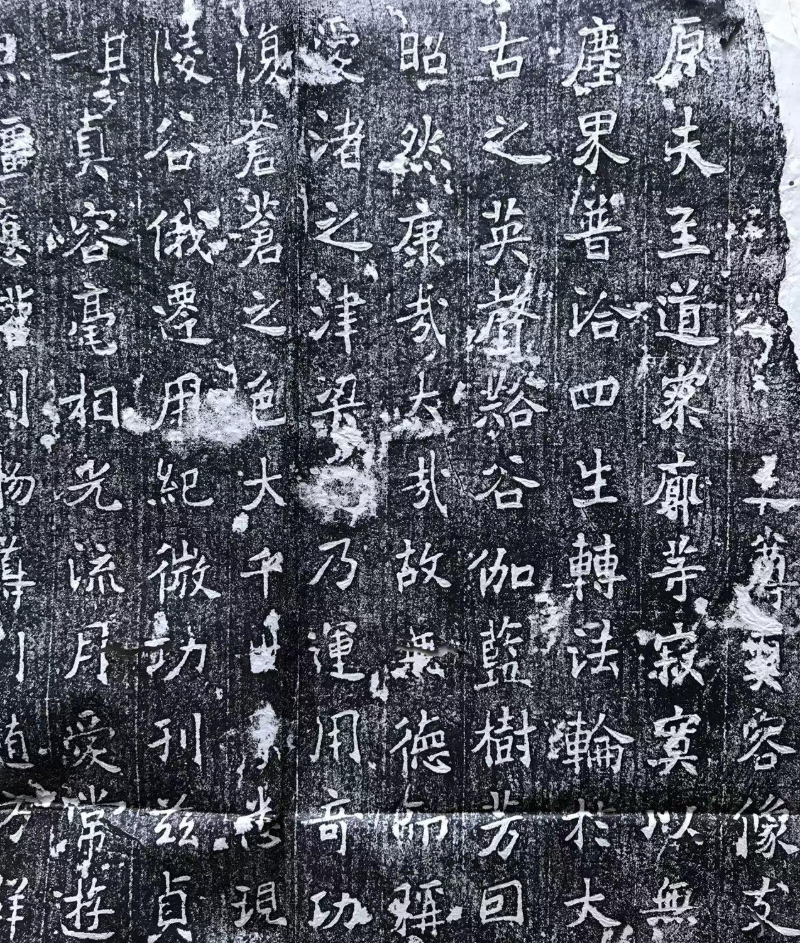 尊真容像支
原夫至道寥廓等寂寞以無
塵界普洽四生轉法輪於大
古之英聲谿谷伽藍樹芳回
昭然康哉大哉故無德而稱
愛渚之津梁乃運用奇功
復蒼蒼之色大千世界悉現
陵谷俄遷用紀微功刊兹貞
其一真容毫相光流月愛常遊
應物隨方